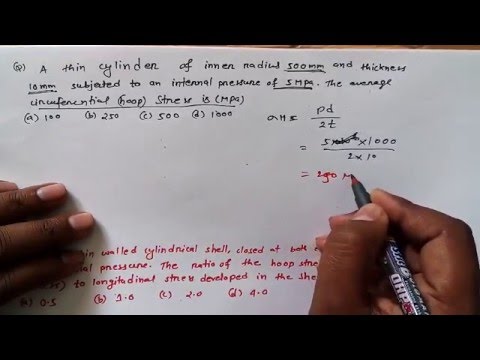 Q) A thin cylinder of inner radius 500mm and thickness
10mm subjected to an internal pressure of 5 MPa. The average
circumferential (hoop) stress is (MPa)
(a) 100 (b) 250 (c) 500 (d) 1000
σH = Pd / 2t
= 5 × 1000 / 2 × 10
= 250 M
walled cylindrical shell, closed at both
pressure. The ratio of the hoop
to longitudinal stress developed in the
(a) 0.5 (b) 1.0 (c) 2.0 (d) 4.0